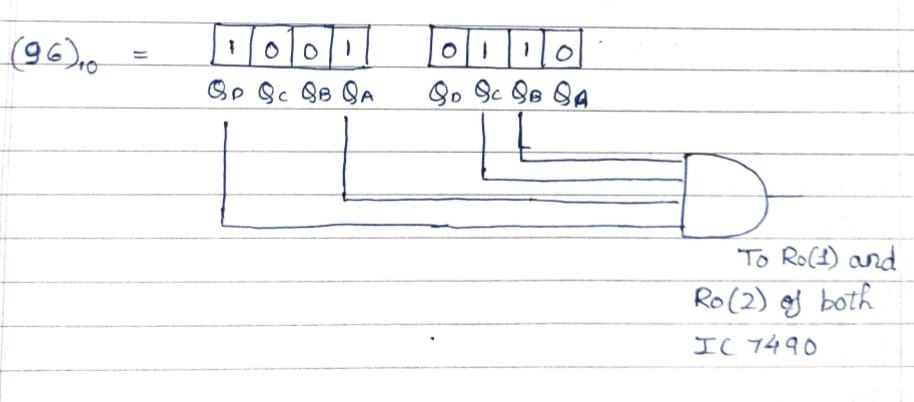 (96)₁₀ = 1 0 0 1 0 1 1 0
QD QC QB QA QD QC QB QA
To R0(1) and
R0(2) of both
IC 7490